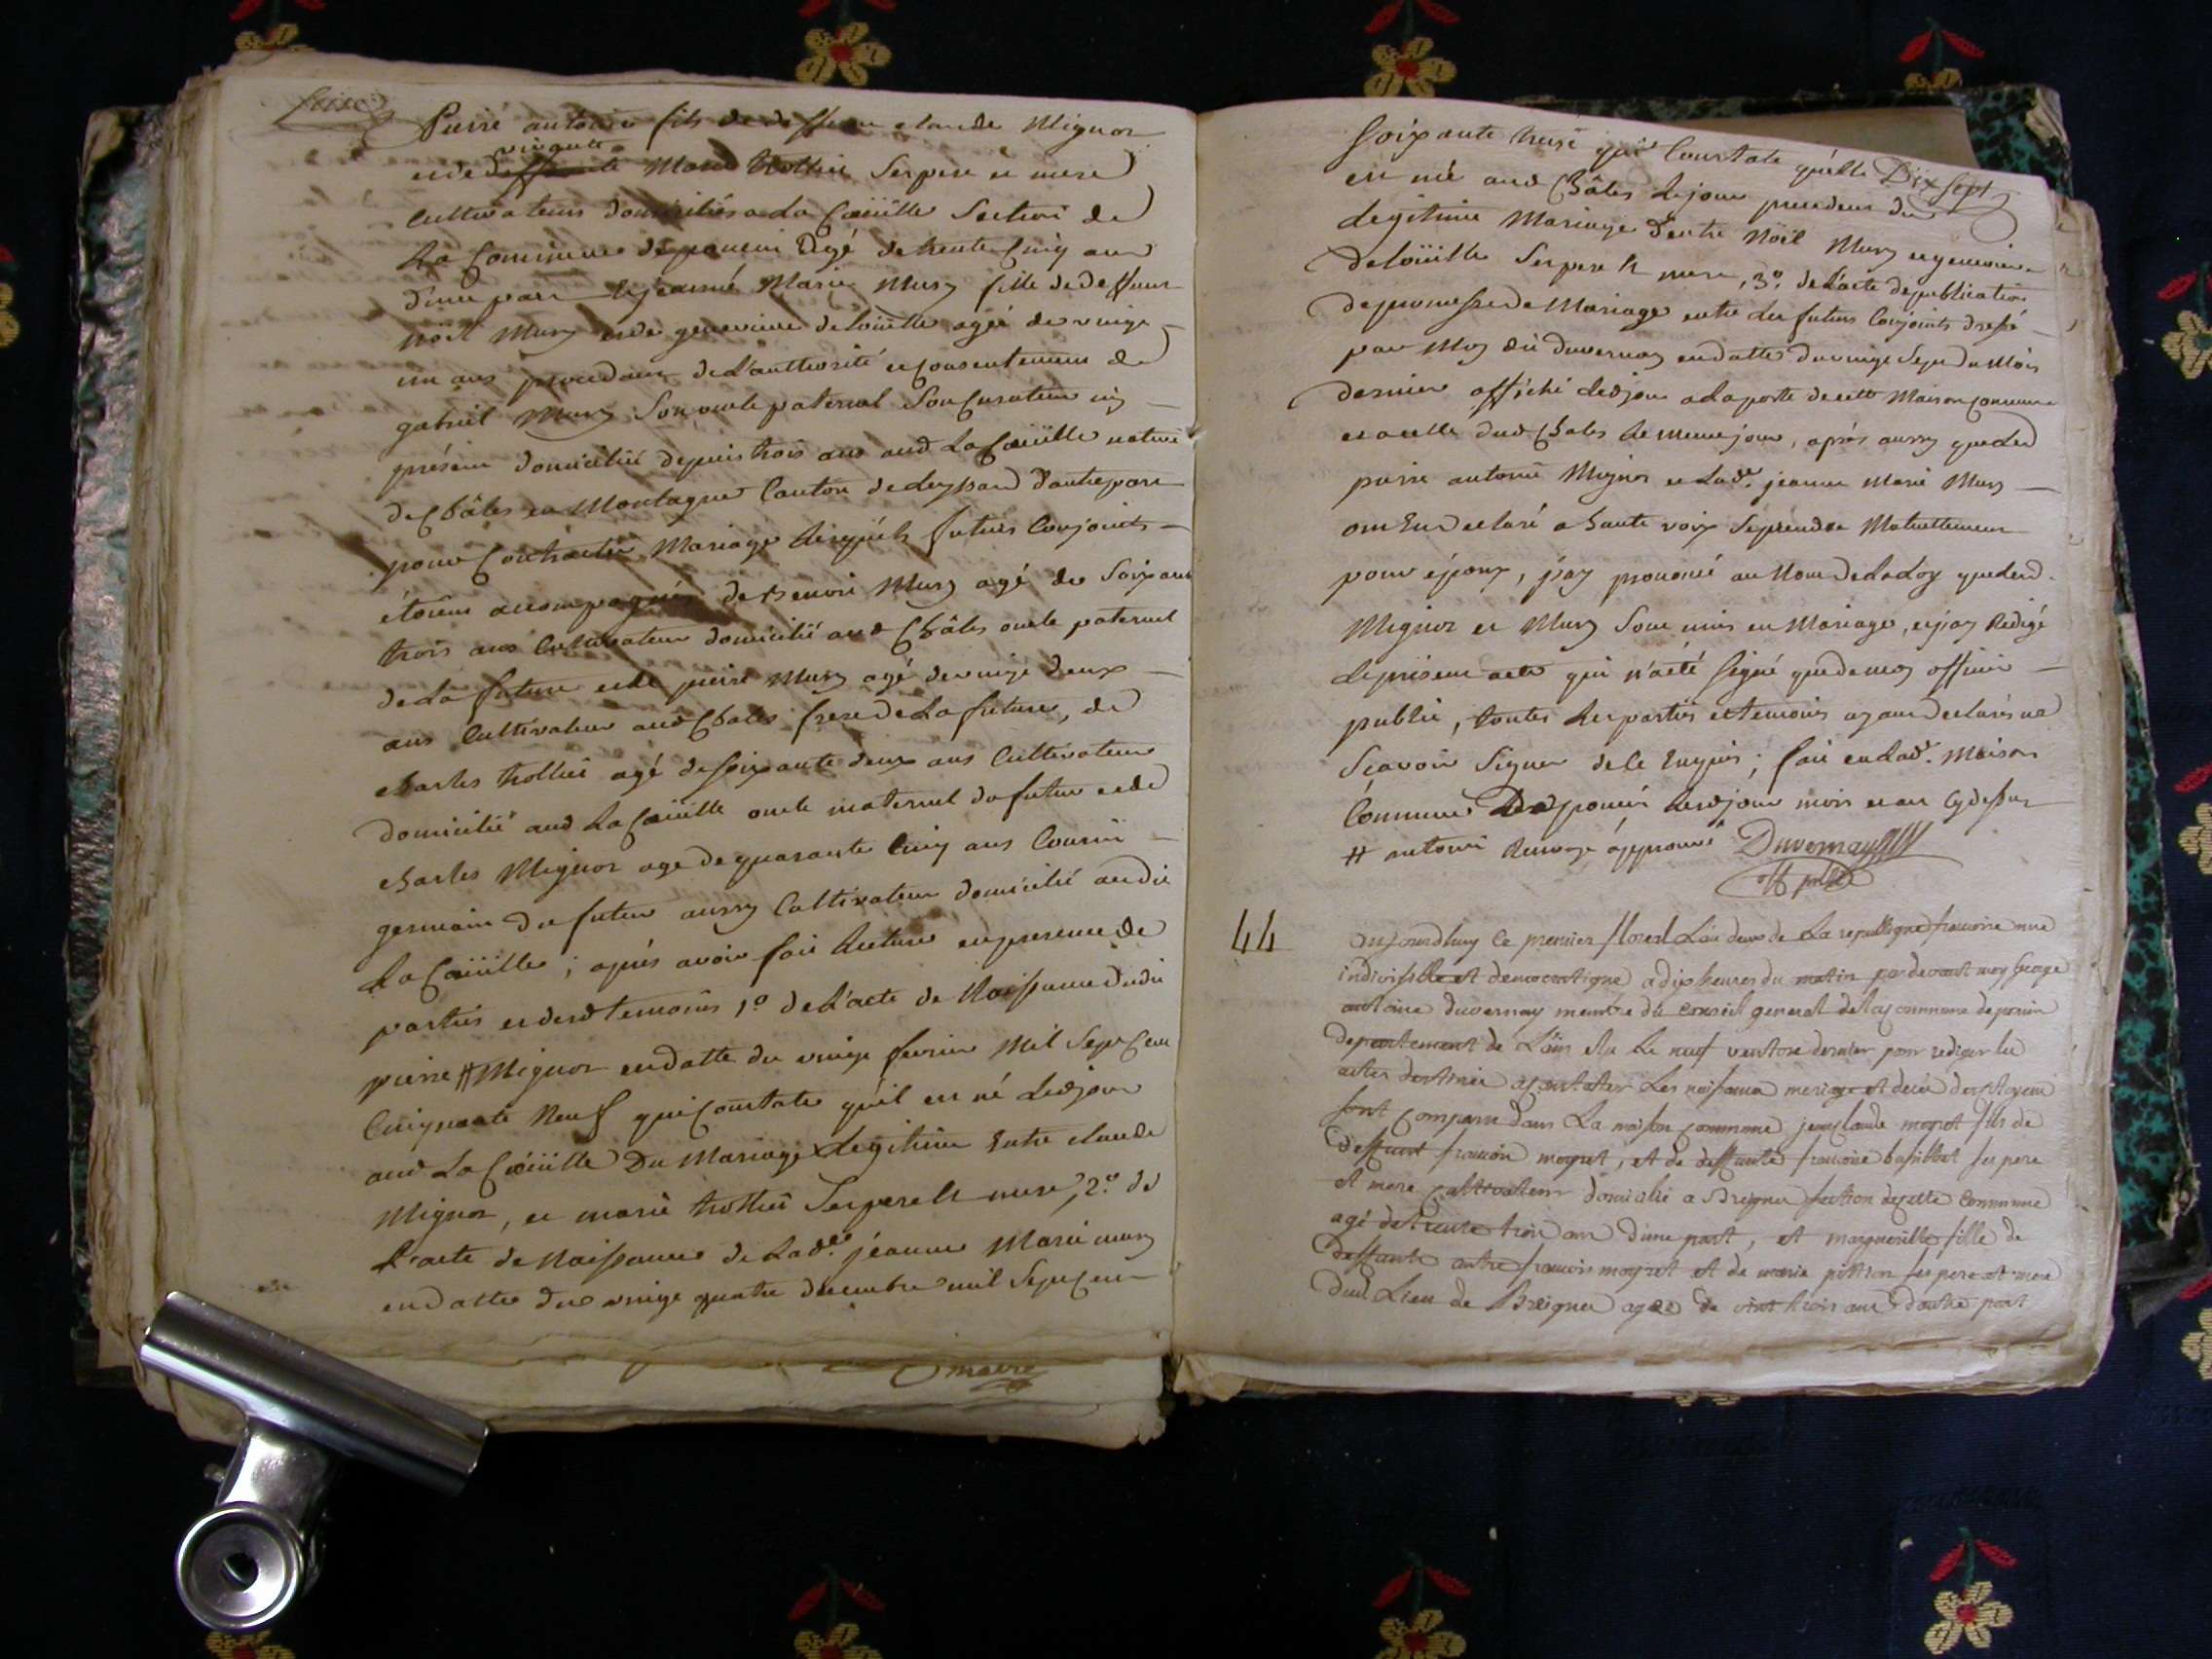 seize
Pierre antoine fils de deffunt claude Mignot
vivante
et de deffunte Marie trollier ses pere et mere
Cultivateurs domiciliés a La Coüille section de
La Commune de poncin agé de trente Cinq ans
d'une part et jeanne Marie Mury fille de deffunt
noël Mury et de genevieve deloüille agée de vingt
un ans procedant de L'authorité et consentement de
gabriel Mury son oncle paternel son Curateur icy
présent domiciliée depuis trois ans aud La Coüille native
de Châles en Montagne Canton de Leyssard d'autre part
pour Contracter Mariage lesquels futurs Conjoints
étoient accompagnés de Benoit Mury agé de soixante
trois ans Cultivateur domicilié aud Châles oncle paternel
de La future et de pierre Mury agé de vingt deux
ans Cultivateur aud Chales frere de La future, de
charles trollier agé de soixante deux ans Cultivateur
domicilié aud La Coüille oncle maternel du futur et de
charles Mignot age de quarante Cinq ans Cousin
germain du futur aussy Cultivateur domicilié audit
La Coüille ; après avoir fait Lecture en presence de
parties et desd temoins 1.º de L'acte de Naissance dudit
pierre # Mignot en datte du vingt fevrier Mil Sept Cent
Cinquante Neuf qui Constate qu'il est né Ledjour
aud La Coüille Du Mariage Legitime Entre claude
Mignot, et marie trollier Ses pere et mere, 2.º de
L'acte de Naissance de Lad.te jeanne Marie mury
en datte du vingt quatre decembre mil Sept Cent
maire
Dix sept
soixante treise qui Constate qu'elle
est née aud Châles Le jour precedent du
Legitime Mariage d'entre Nöel Mury et genevieve
deloüille Ses pere et mere, 3.º de L'acte de publication
de promesse de Mariage entre les futurs Conjoints dressé
par Moy dit Duvernay en datte du vingt Sept du Mois
dernier affiché Ledjour a La porte de cette Maison Commune
et a celle dud Chales Le meme jour, après aussy que Led
pierre antoine Mignot et Lad.e jeanne Marie Mury
ont Eu declaré a haute voix Se prendre Mutuellement
pour époux, j'ay prononcé au Nom de La Loy que Lesd.
Mignot et Mury Sont unis en Mariage, et j'ay Redigé
Le présent acte qui n'a été Signé que de moy officier
public, toutes Les parties et temoins ayant declarés ne
Sçavoir Signer de Ce Enquis ; fait en Lad.e Maison
Commune de poncin Lesdjour mois et an Cy dessus
# antoine Renvoy approuvé Duvernay
off public
44
aujourdhuy Ce premier floreal L'an deux de La republique francoise une
indivisible et democratique a dix heures du matin pardevant moy
antoine duvernay membre du conseil general de la commune de poncin
departement de L'ain elu Le neuf ventose dernier pour rediger les
actes destinés a constater Les naissance mariage et decès des citoyens
sont comparu dans La maison commune jean claude moyret fils de
deffunt francois moyret, et de deffunte francoise ses pere
et mere Cultivateur domicilié a Breignes section de cette commune
agé de trente trois ans d'une part, et marguerite fille de
deffunt autre francois moyret et de marie pittion ses pere et mere
dud. Lieu de Breignes agée de vint trois ans d'autre part